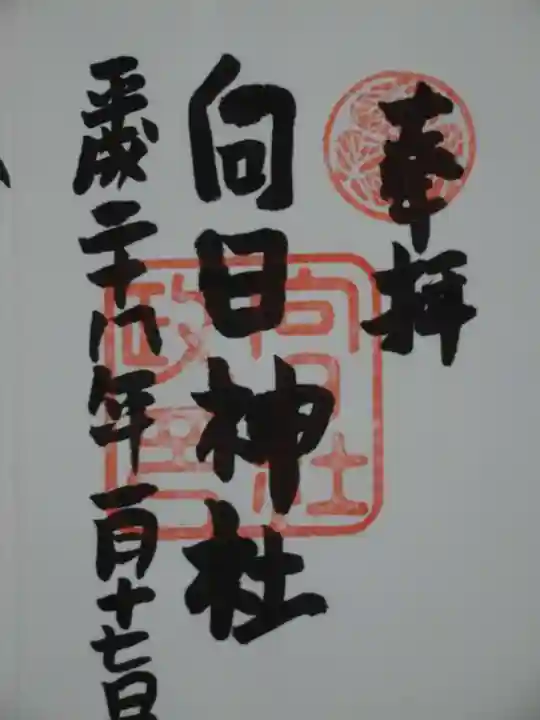 奉拝
向日神社
平成二十八年一月十七日
向日社